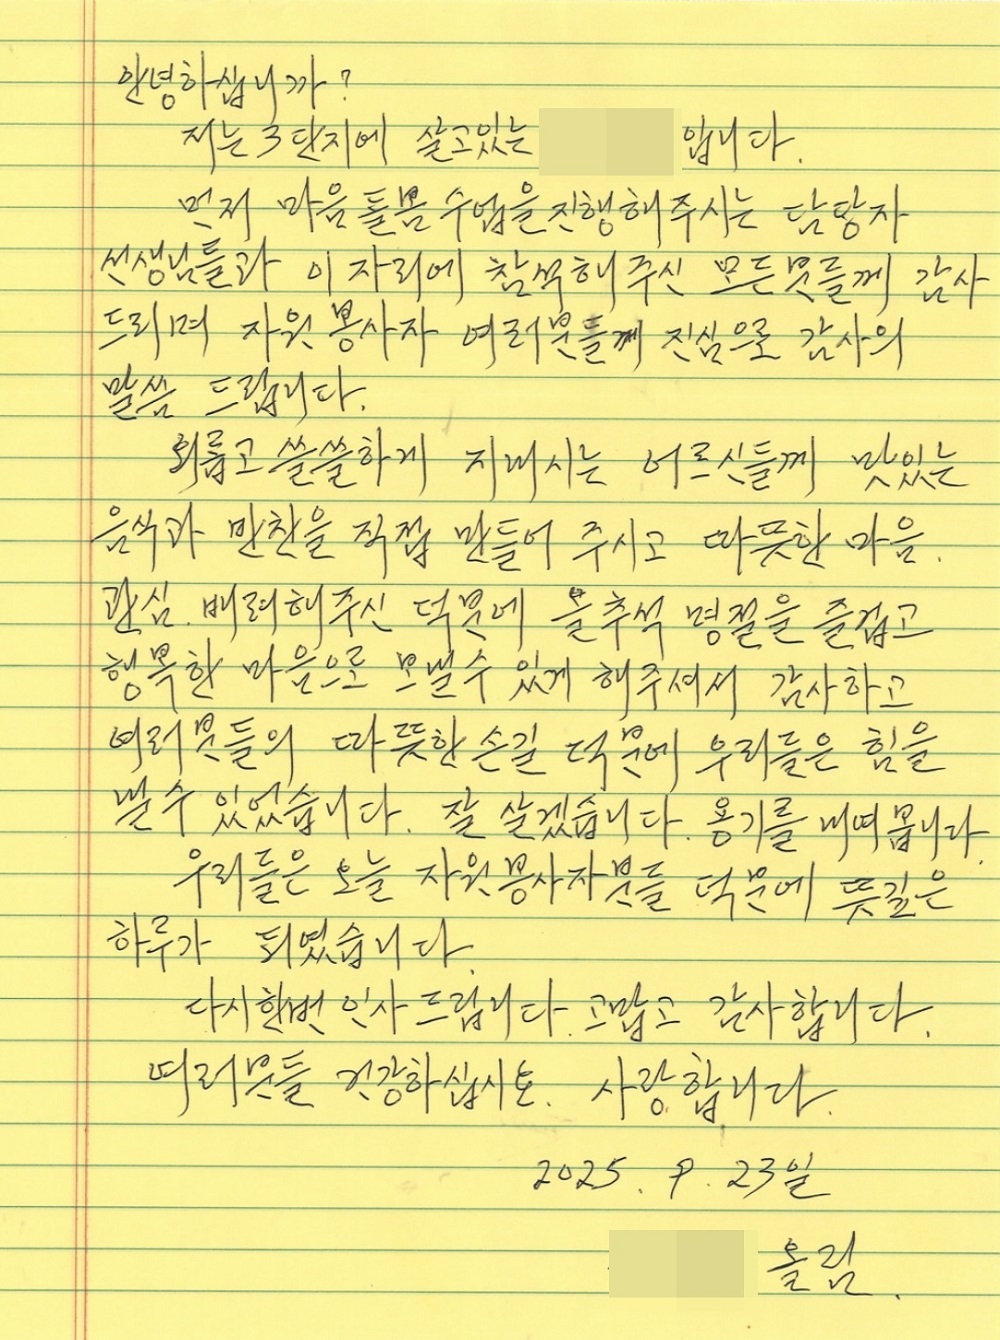 안녕하십니까?
저는 3단지에 살고있는 입니다.
먼저 마음돌봄 수업을 진행해주시는 담당자
선생님들과 이 자리에 참석해주신 모든분들께 감사
드리며 자원봉사자 여러분들께 진심으로 감사의
말씀 드립니다.
외롭고 쓸쓸하게 지내시는 어르신들께 맛있는
음식과 반찬을 직접 만들어 주시고 따뜻한 마음.
관심. 배려해주신 덕분에 올추석 명절을 즐겁고
행복한 마음으로 보낼수 있게 해주셔서 감사하고
여러분들의 따뜻한 손길 덕분에 우리들은 힘을
낼수 있었습니다. 잘 살겠습니다. 용기를 내여봅니다.
우리들은 오늘 자원봉사자분들 덕분에 뜻깊은
하루가 되였습니다.
다시한번 인사드립니다. 고맙고 감사합니다.
여러분들 건강하십시오. 사랑합니다.
2025. 9. 23일
올림.